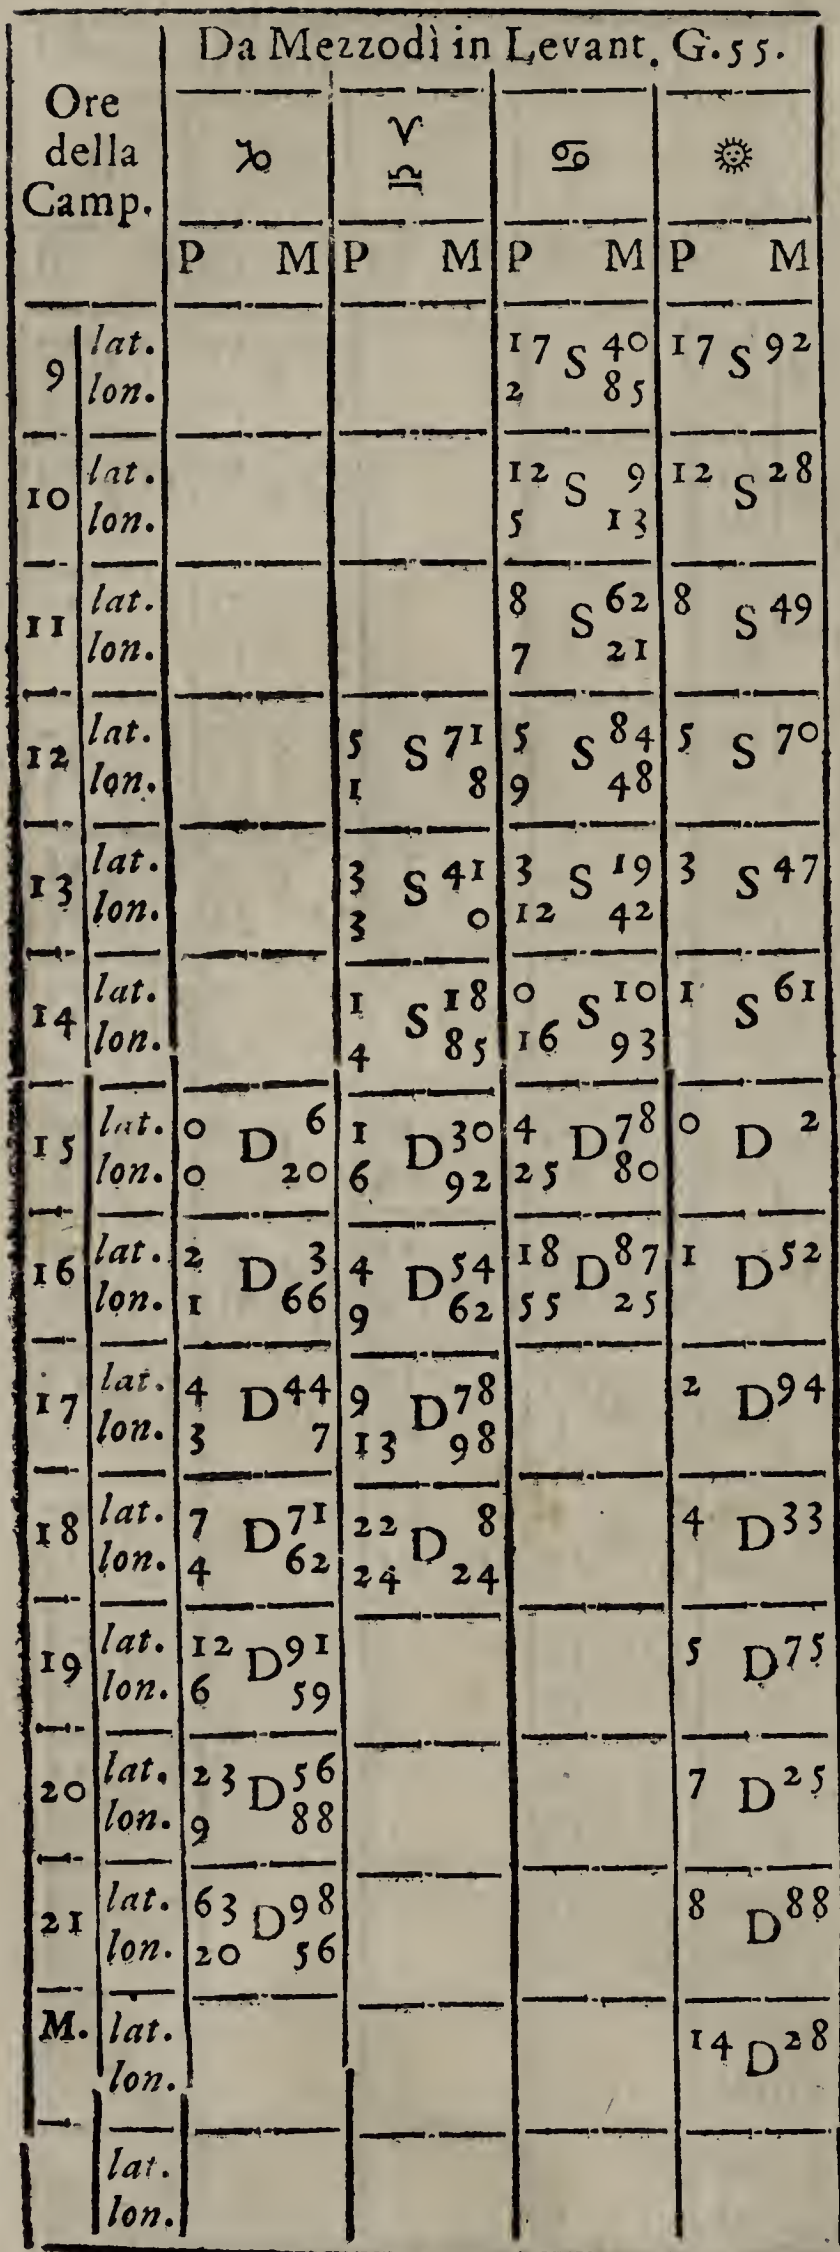 Da Mezzodì in Levant. G. 55.
Ore della Camp. | ♑ | ♈ ♎ | ♋ | ☀
P M | P M | P M | P M
9 lat. | | | 17 S 40 | 17 S 92
lon. | | | 2 85 |
10 lat. | | | 12 S 9 | 12 S 28
lon. | | | 5 13 |
11 lat. | | | 8 S 62 | 8 S 49
lon. | | | 7 21 |
12 lat. | | 5 S 71 | 5 S 84 | 5 S 70
lon. | | 1 8 | 9 48 |
13 lat. | | 3 S 41 | 3 S 19 | 3 S 47
lon. | | 3 0 | 12 42 |
14 lat. | | 1 S 18 | 0 S 10 | 1 S 61
lon. | | 4 85 | 16 93 |
15 lat. | 0 D 6 | 1 D 30 | 4 D 78 | 0 D 2
lon. | 0 20 | 6 92 | 25 80 |
16 lat. | 2 D 3 | 4 D 54 | 18 D 87 | 1 D 52
lon. | 1 66 | 9 62 | 55 25 |
17 lat. | 4 D 44 | 9 D 78 | | 2 D 94
lon. | 3 7 | 13 98 | |
18 lat. | 7 D 71 | 22 D 8 | | 4 D 33
lon. | 4 62 | 24 24 | |
19 lat. | 12 D 91 | | | 5 D 75
lon. | 6 59 | | |
20 lat. | 23 D 56 | | | 7 D 25
lon. | 9 88 | | |
21 lat. | 63 D 98 | | | 8 D 88
lon. | 20 56 | | |
M. lat. | | | | 14 D 28
lon. | | | |
lat. | | | |
lon. | | | |